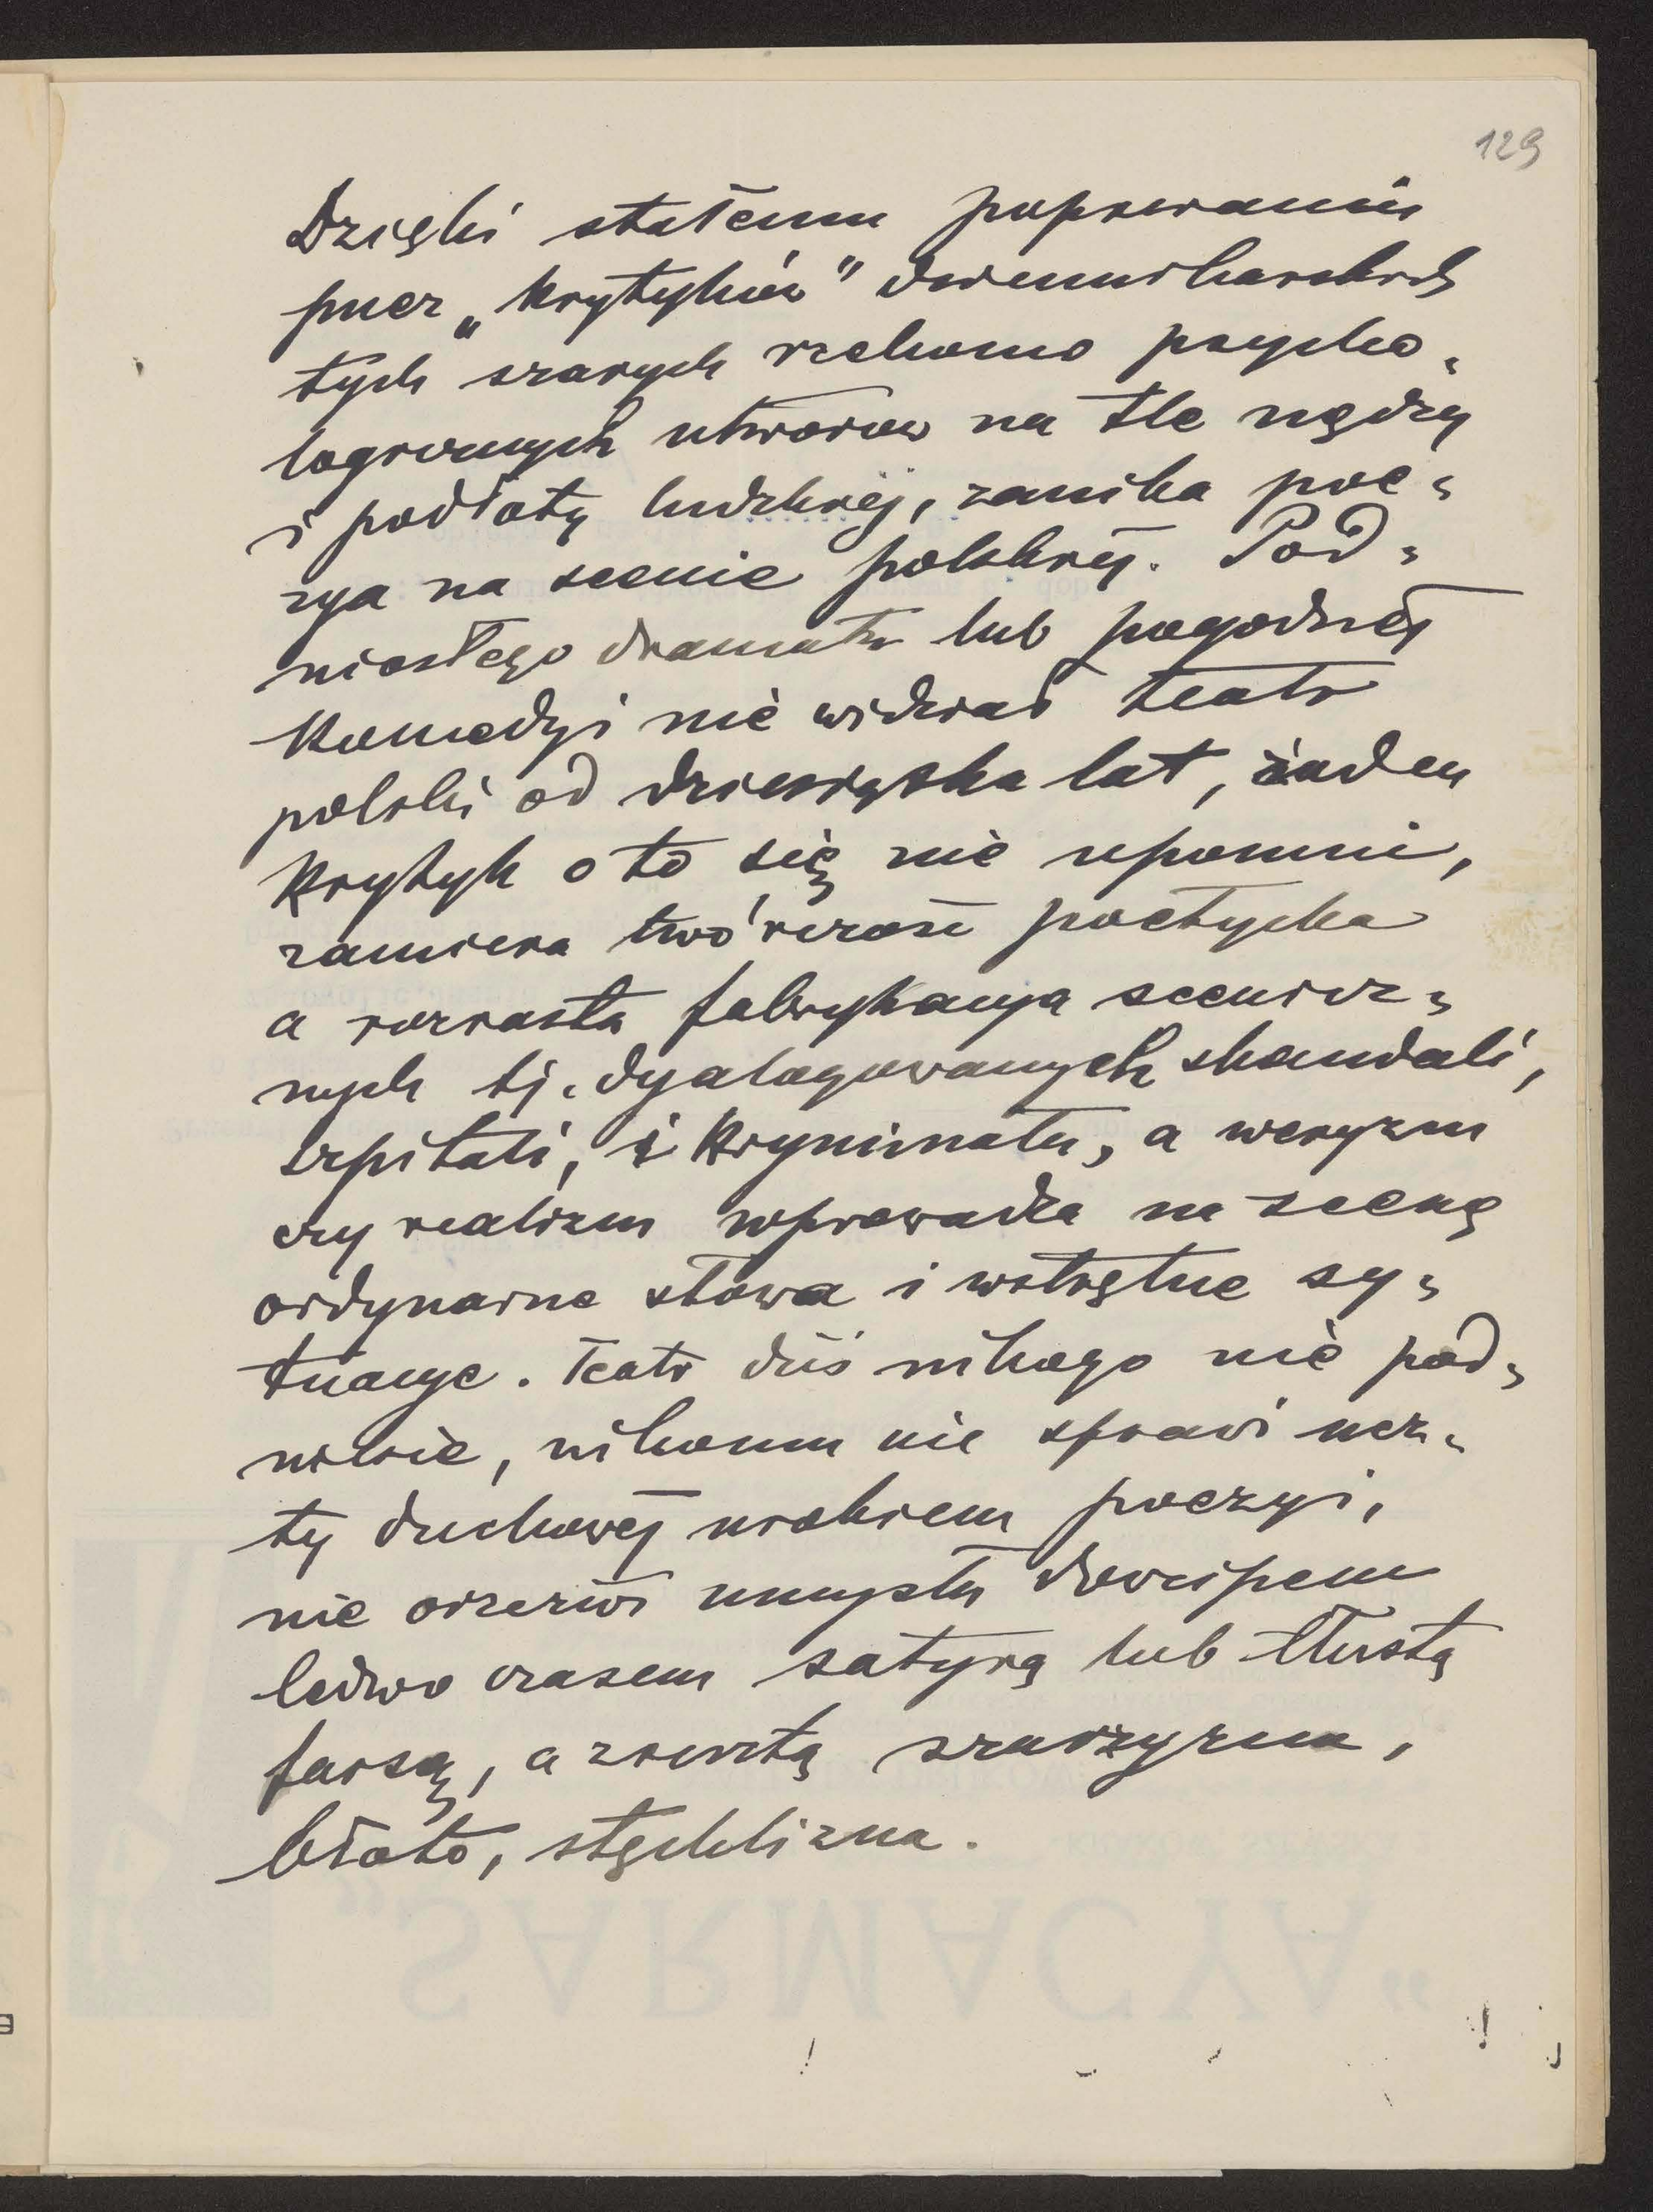 129
Dzięki stałemu popieraniu
przez „krytyków" dziennikarskich
tych szarych rzekomo psycho„
logicznych utworów na tle nędzy
i podłoty ludzkiej, zanika poe„
zya na scenie polskiej. Pod„
niosłego dramatu lub pogodnej
komedyi nie widział teatr
polski od dziesiątka lat, żaden
krytyk o to się nie upomni,
zamiera twórczość poetycka
a rozrasta fabrykacya scenicz„
nych tj. dyalogowanych skandali,
szpitali, i kryminału, a weryzm
czy realizm wprowadza na scenę
ordynarne słowa i wstrętne sy„
tuacye. Teatr dziś nikogo nie pod„
niesie, nikomu nie sprawi ucz„
ty duchowej urokiem poezyi,
nie orzeźwi umysłu dowcipem
ledwo czasem satyrą lub tłustą
farsą, a zresztą szarzyzna,
błoto, stęchlizna.
„SARMACYA"